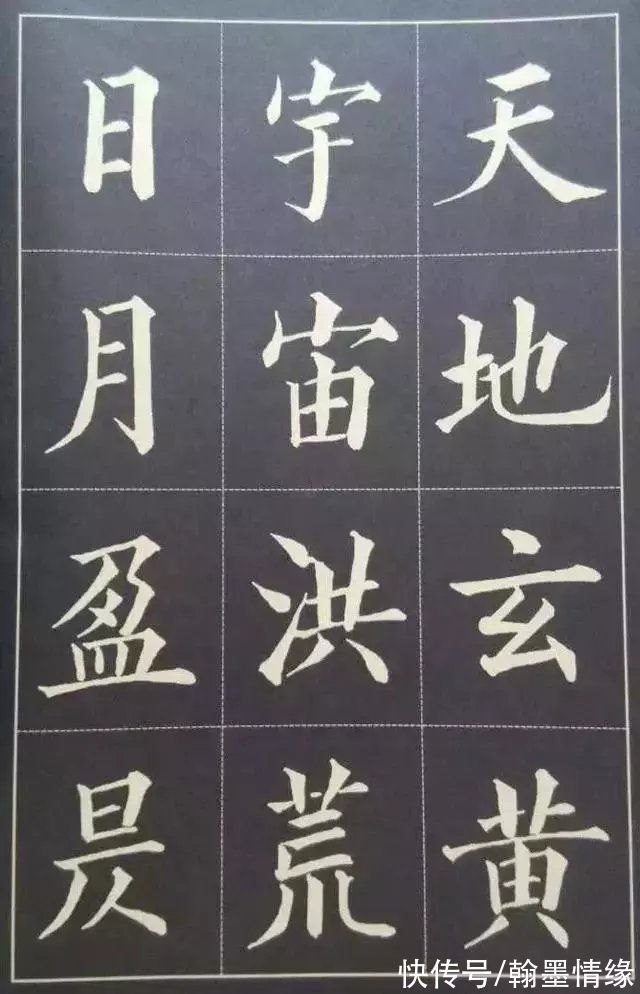 天地玄黄
宇宙洪荒
日月盈昃
快传号/翰墨情缘